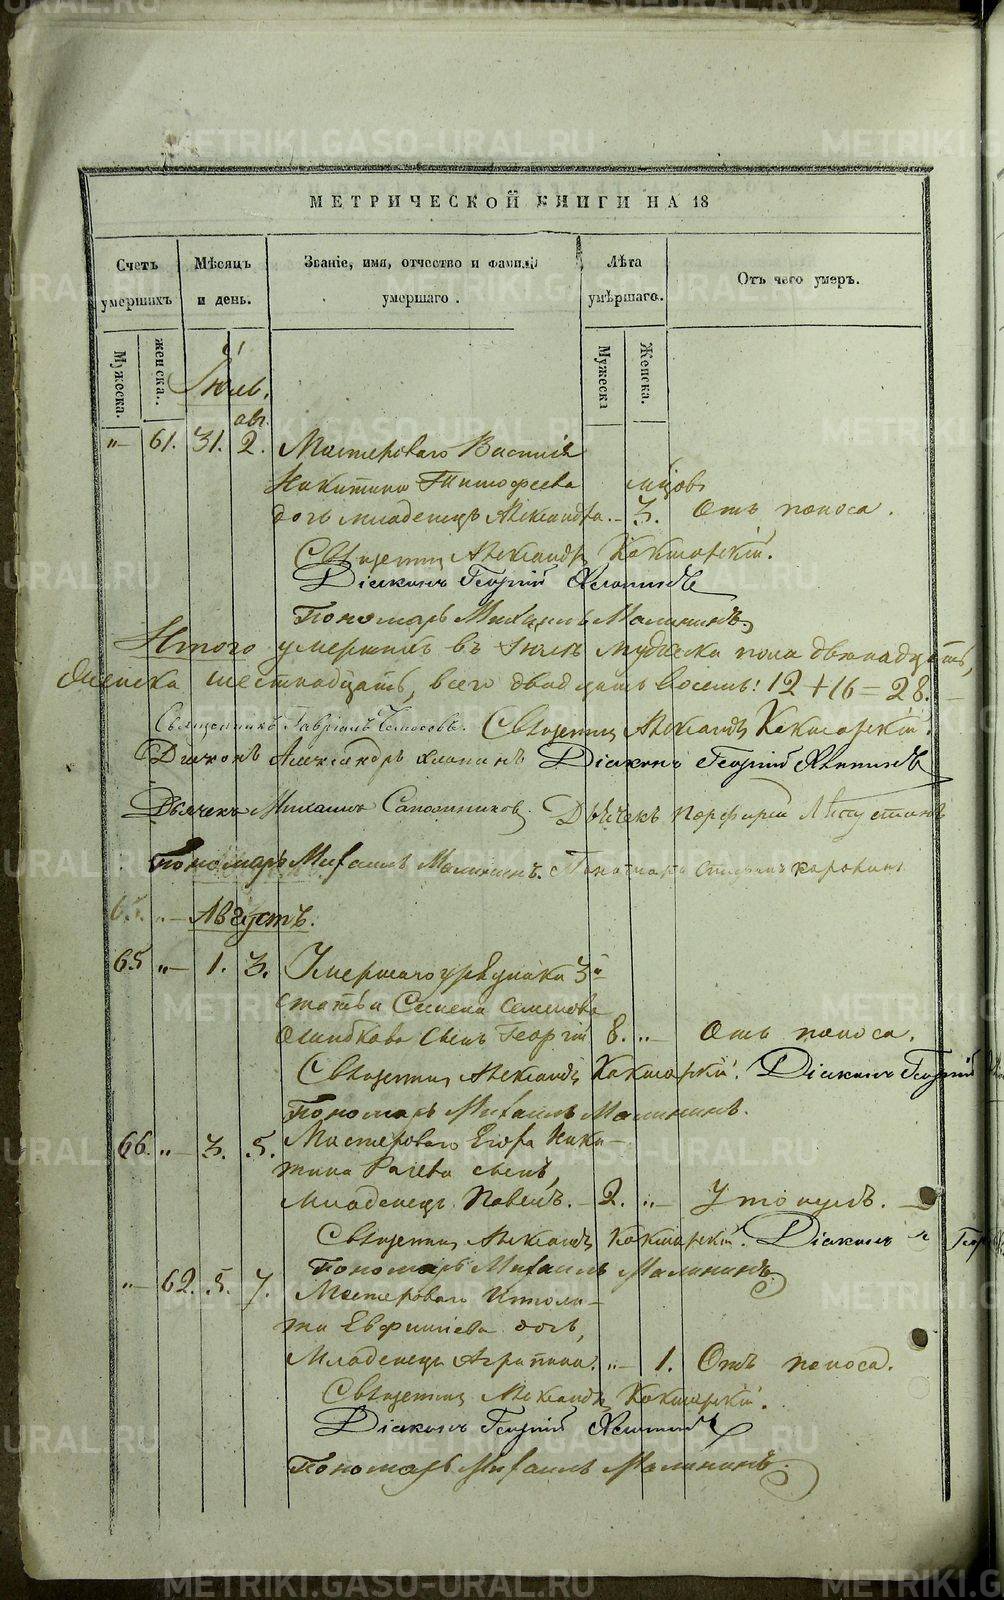 METRIKI.GASO-URAL.RU
МЕТРИЧЕСКОЙ КНИГИ НА 18
Счетъ умершихъ
Мѣсяцъ и день.
Званіе, имя, отчество и фамилія умершаго.
Лѣта умѣршаго.
Отъ чего умеръ.
Мужеска.
женска.
Мужеска
Женска.
Іюль.
авг.
„ 61. 31. 2. Мастероваго Василія
Никитина Тимофеева мѣсяцов
дочь младенецъ Александра. – 3. Отъ поноса.
Священникъ Александръ Кокшарскій.
Діаконъ Георгій
Пономарь Михаилъ Малининъ.
Итого умершихъ въ Іюлѣ мужеска пола двѣнадцать,
женска шестнадцать, всего двадцать восемь: 12 + 16 = 28.
Священникъ Гавріилъ Священникъ Александръ Кокшарскій.
Діаконъ Александръ Діаконъ Георгій
Дьячекъ Михаилъ Сапожниковъ Дьячекъ Порфирій
Пономарь Михаилъ Малининъ. Пономарь
65. „ Августъ.
65 „ 1. 3. Умершаго урядника 3й
статьи Семена Семенова
Ошибкова сынъ Георгій 8. „ Отъ поноса.
Священникъ Александръ Кокшарскій. Діаконъ Георгій
Пономарь Михаилъ Малининъ.
66. „ 3. 5. Мастероваго Егора Ники-
тина сынъ,
Младенецъ Павелъ. – 2. „ Утонулъ.
Священникъ Александръ Кокшарскій. Діаконъ
Пономарь Михаилъ Малининъ
„ 62. 5. 7. Мастероваго Ипполи-
та Евфиміева дочь,
Младенецъ Агрипина. „ 1. Отъ поноса.
Священникъ Александръ Кокшарскій.
Діаконъ Георгій
Пономарь Михаилъ Малининъ.